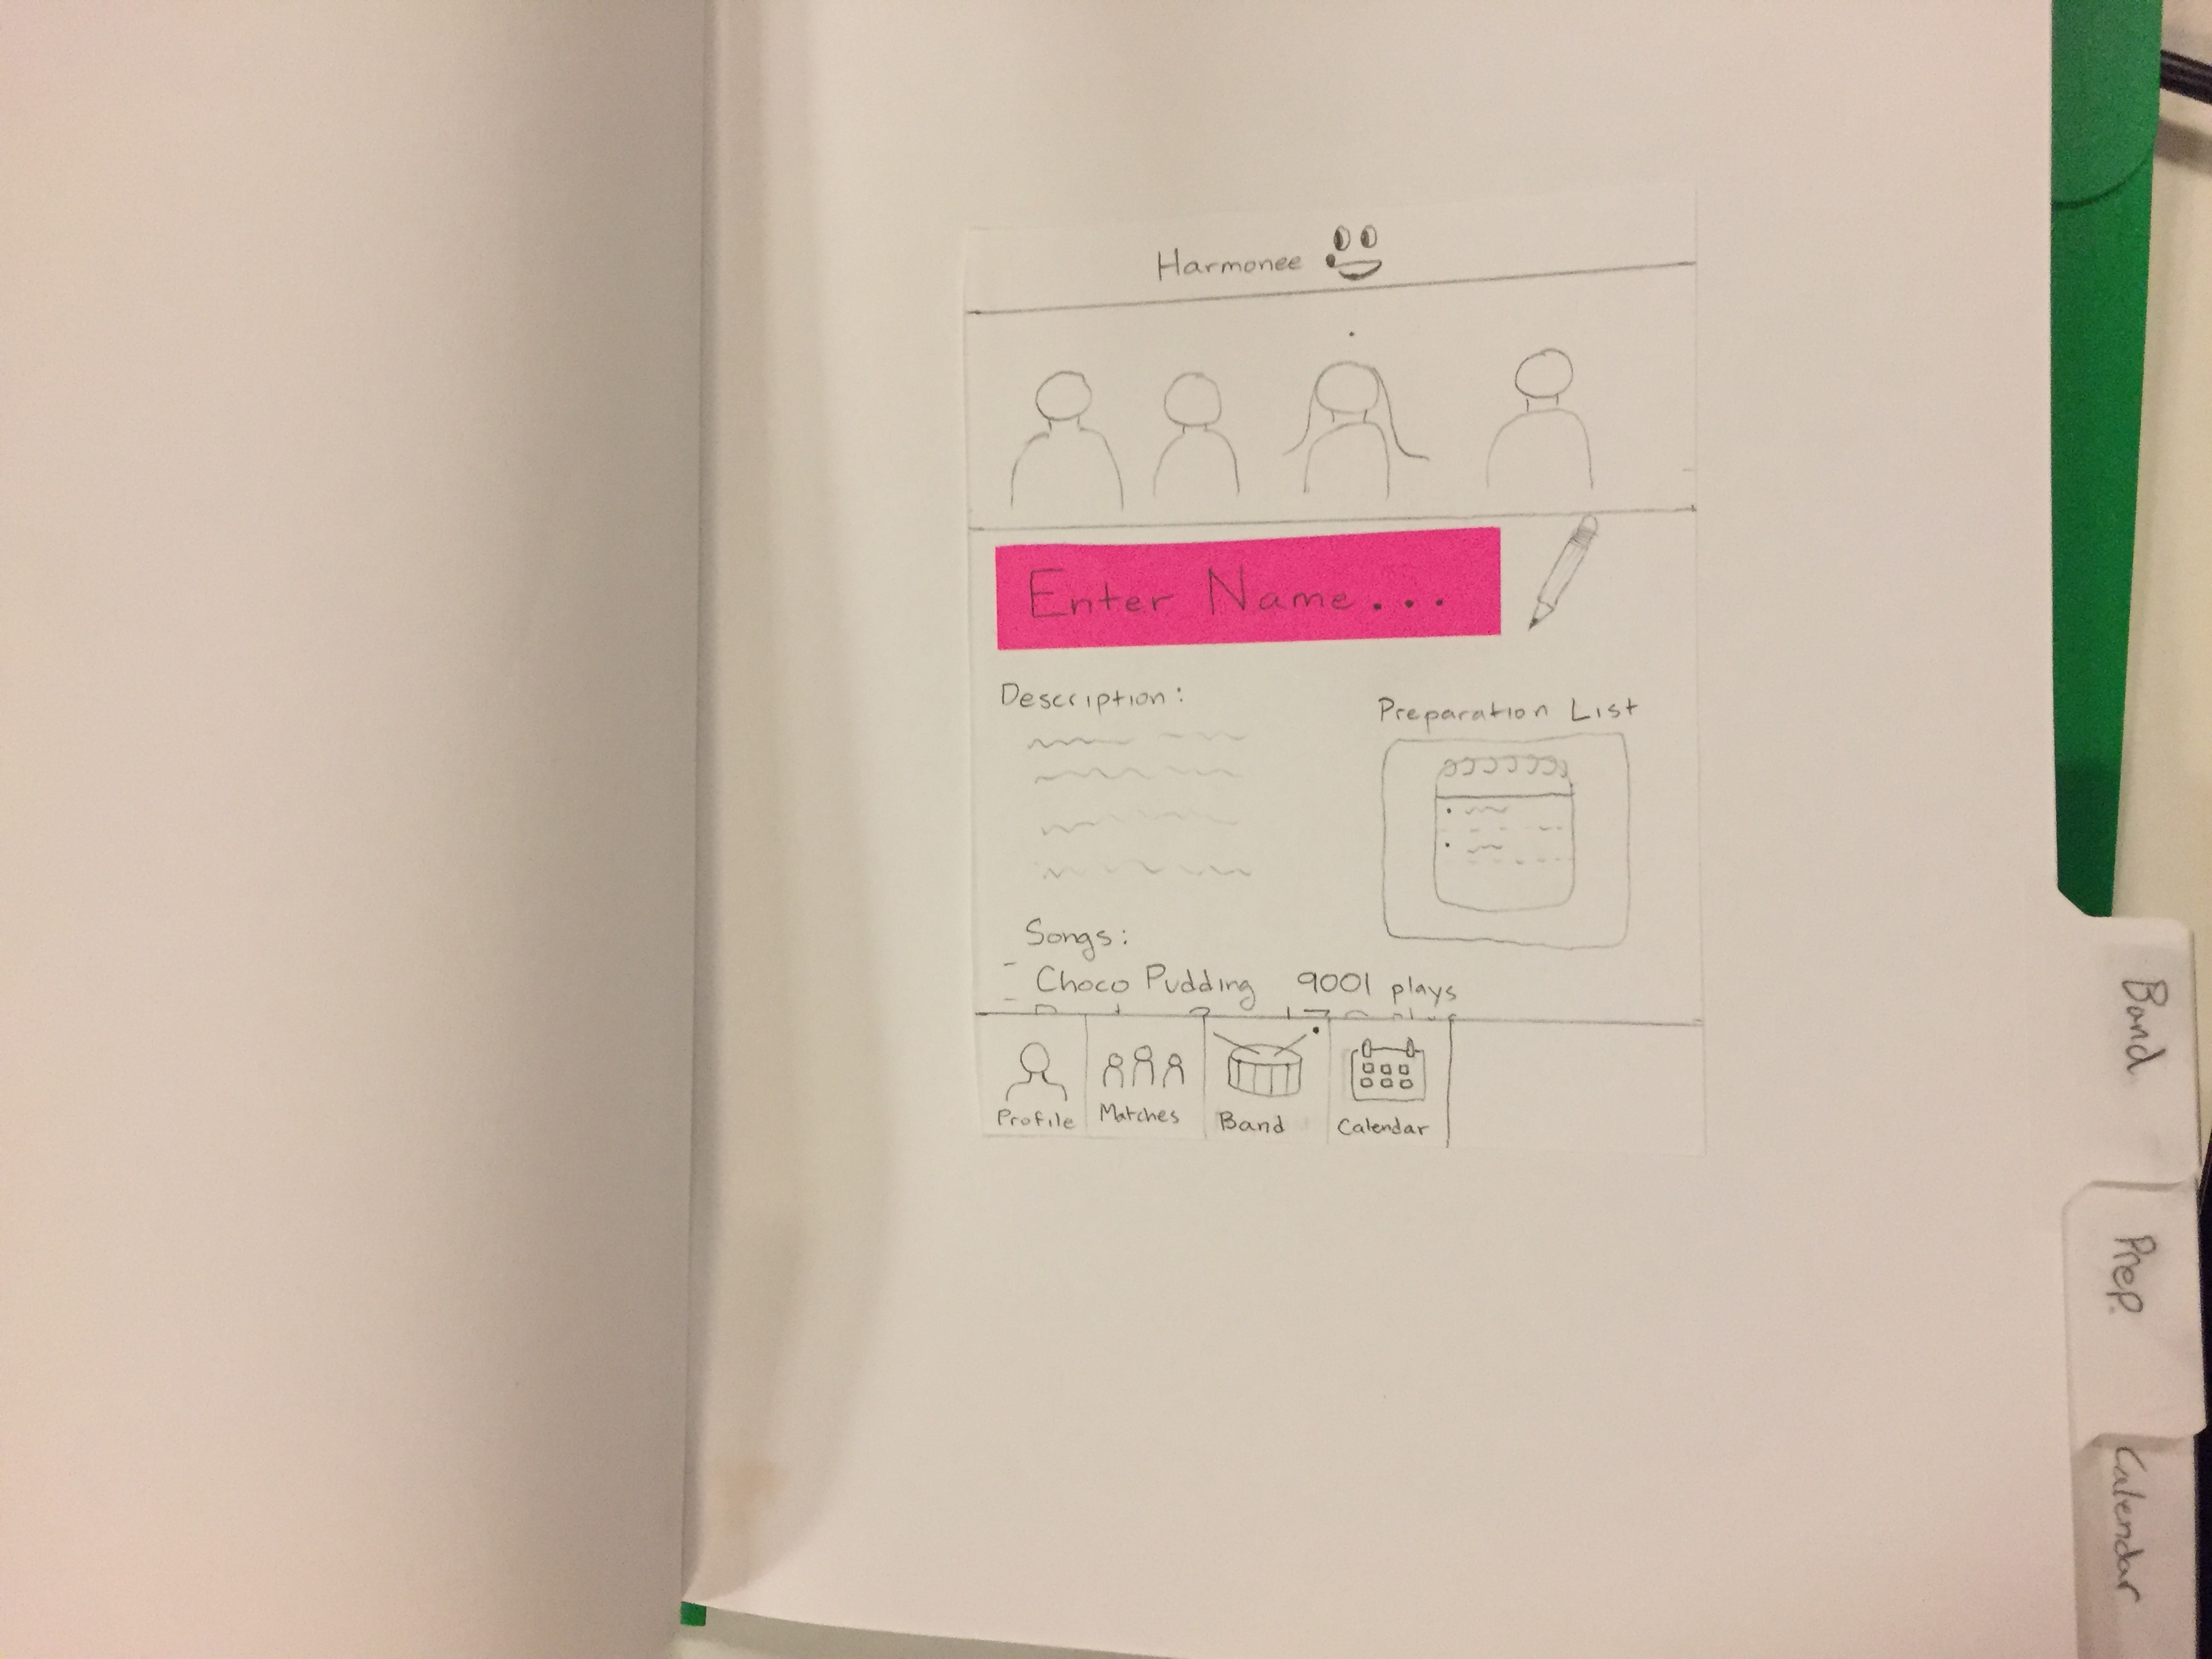 Harmonee
Enter Name...
Description:
Preparation List
Songs:
- Choco Pudding 9001 plays
Profile
Matches
Band
Calendar
Band
Prep.
Calendar